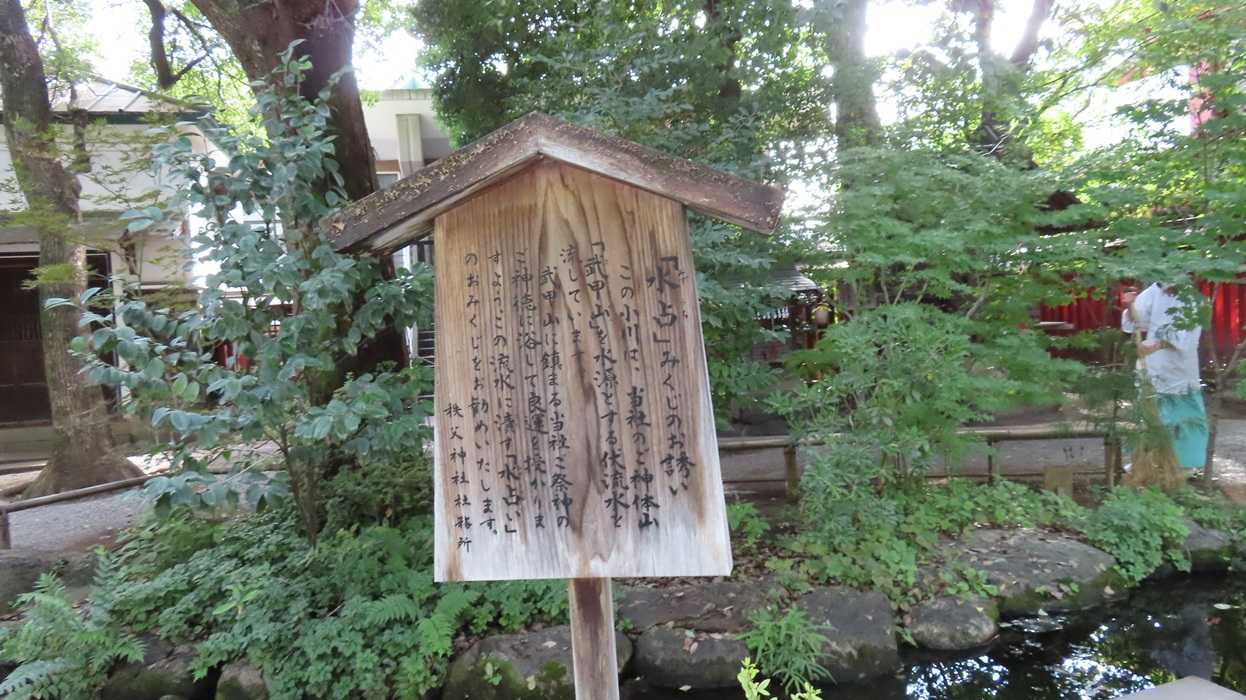 「水占」みくじのお誘い
この小川は、当社のご神体山
「武甲山」を水源とする伏流水を
流しています。
武甲山に鎮まる当社ご祭神の
ご神徳に浴して良運を授かりま
すよう、この流水に清す「水占い」
のおみくじをお勧めいたします。
秩父神社社務所